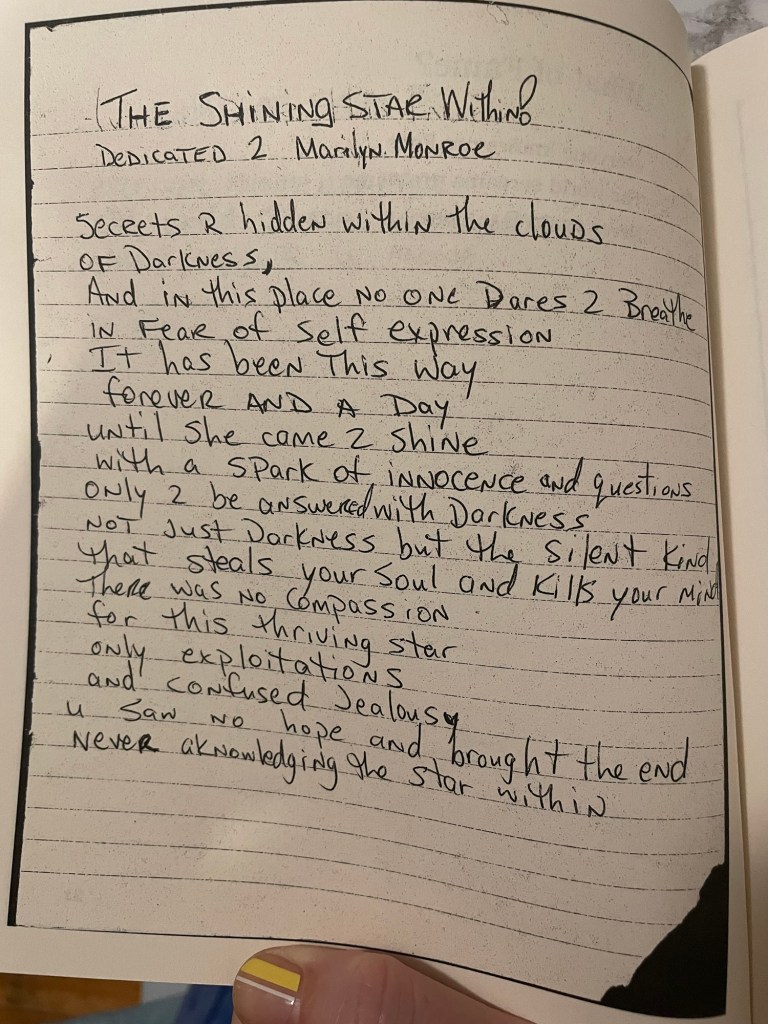 THE SHINING STAR WithiN!
DEDICATED 2 Marilyn MONROE
Secrets R hidden within the clouds
OF Darkness,
And in this place NO ONE Dares 2 Breathe
in Fear of Self expression
It has been This Way
forever AND A Day
until She came 2 Shine
with a Spark of innocence and questions
ONLY 2 be answered with Darkness
NOT Just Darkness but the Silent Kind
that steals your Soul and Kills your Mind
There was No Compassion
for this thriving star
only exploitations
and confused Jealousy
u Saw no hope and brought the end
Never aknowledging the star within